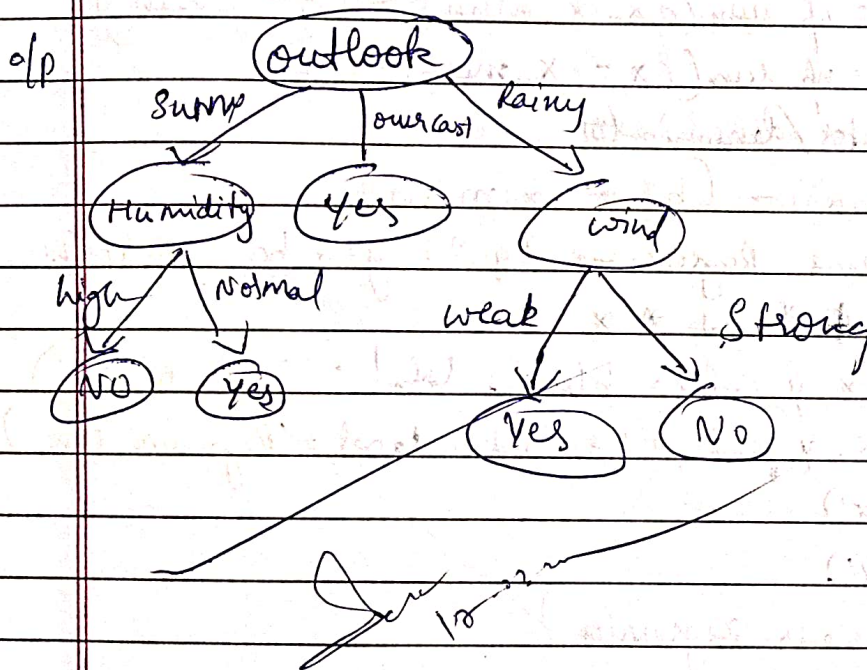 o/p
outlook
Sunny overcast Rainy
Humidity Yes wind
high Normal
weak Strong
NO Yes
Yes No